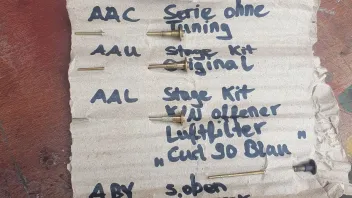 AAC Serie ohne
Tuning
AAU Stage Kit
Original
AAL Stage Kit
K/N offener
Luftfilter
"Curl 90 Blau"
ABY s.oben